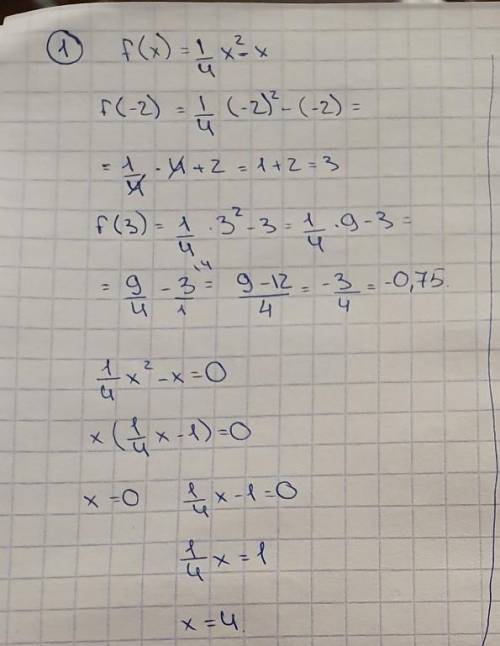 1 f(x) = 1/4 x² - x
f(-2) = 1/4 (-2)² - (-2) =
= 1/4 · 4 + 2 = 1 + 2 = 3
f(3) = 1/4 · 3² - 3 = 1/4 · 9 - 3 =
= 9/4 - 3/1 ·4 = (9-12)/4 = -3/4 = -0,75.
1/4 x² - x = 0
x(1/4 x - 1) = 0
x = 0 1/4 x - 1 = 0
1/4 x = 1
x = 4.